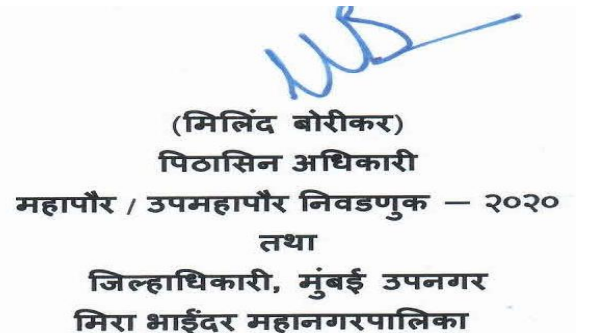 (मिलिंद बोरीकर)
पिठासिन अधिकारी
महापौर / उपमहापौर निवडणुक – २०२०
तथा
जिल्हाधिकारी, मुंबई उपनगर
मिरा भाईंदर महानगरपालिका